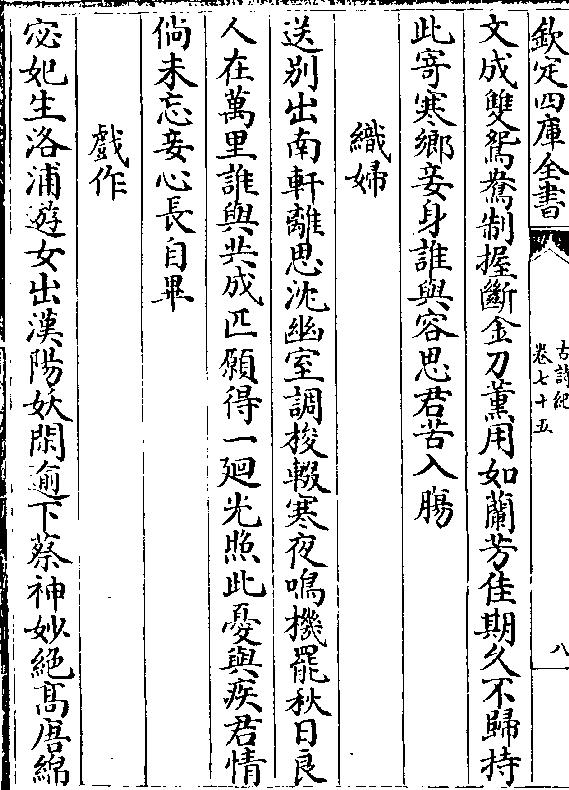 欽定四庫全書
古詩紀
卷七十五
八
文成雙鴛鴦制握斷金刀薰用如蘭芳佳期久不歸持
此寄寒鄉妾身誰與容思君苦入腸
織婦
送别出南軒離思沈幽室調梭輟寒夜鳴機罷秋日良
人在萬里誰與共成匹願得一廻光照此憂與疾君情
倘未忘妾心長自畢
戲作
宓妃生洛浦遊女出漢陽妖閑逾下蔡神妙絶髙唐綿